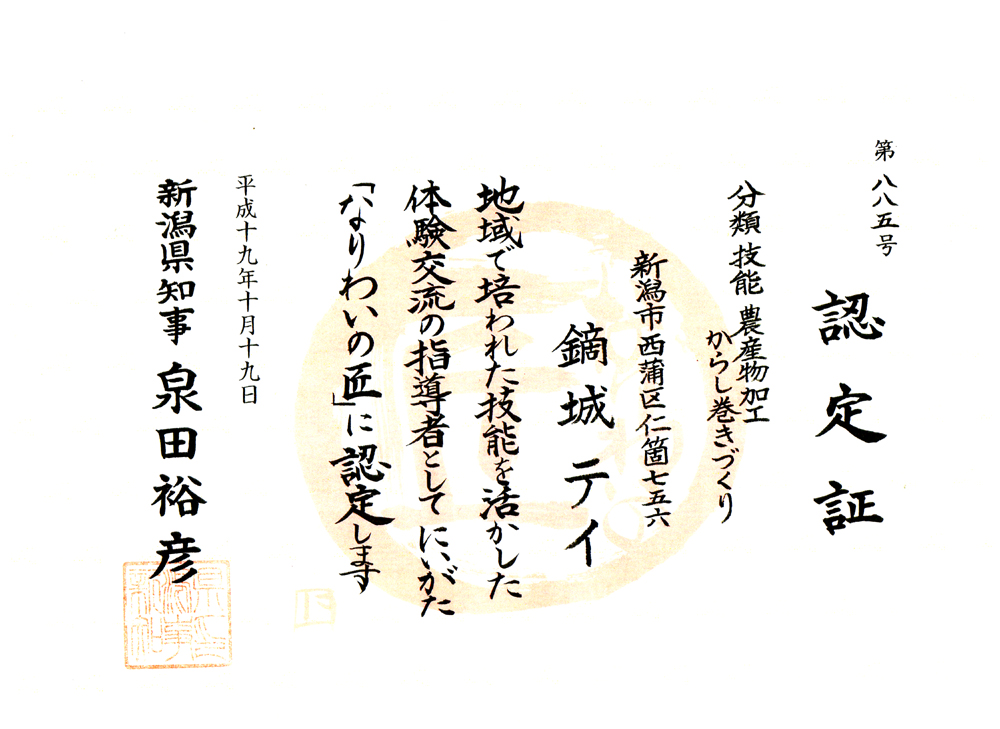 第八八五号
認定証
分類 技能 農産物加工
からし巻きづくり
新潟市西蒲区仁箇七五六
鏑城テイ
地域で培われた技能を活かした
体験交流の指導者としてにいがた
「なりわいの匠」に認定します
平成十九年十月十九日
新潟県知事 泉田裕彦